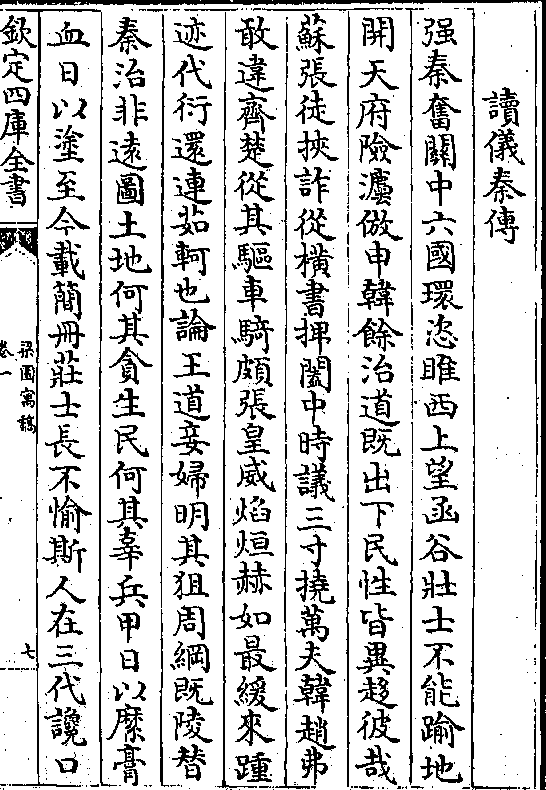 讀儀秦傳
强秦奮關中六國環恣睢西上望函谷壯士不能踰地
開天府險灋倣申韓餘治道既出下民性皆異趍彼哉
蘇張徒挾詐從横書捭闔中時議三寸撓萬夫韓趙弗
敢違齊楚從其驅車騎頗張皇威焰烜赫如最緩來踵
迹代衍還連茹軻也論王道妾婦明其狙周綱既陵替
秦治非逺圖土地何其貪生民何其辜兵甲日以縻膏
血日以塗至今載簡冊莊士長不愉斯人在三代讒口
欽定四庫全書
梁園寓稿
卷一
七